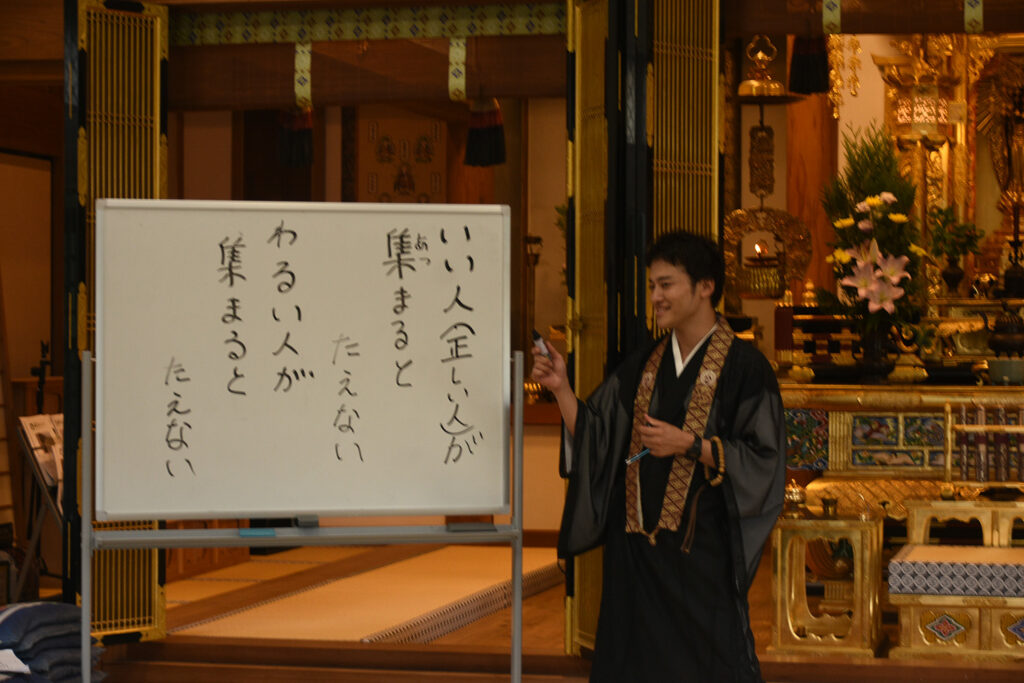 いい人(正しい人)が
集まると
あつ
たえない
わるい人が
集まると
たえない